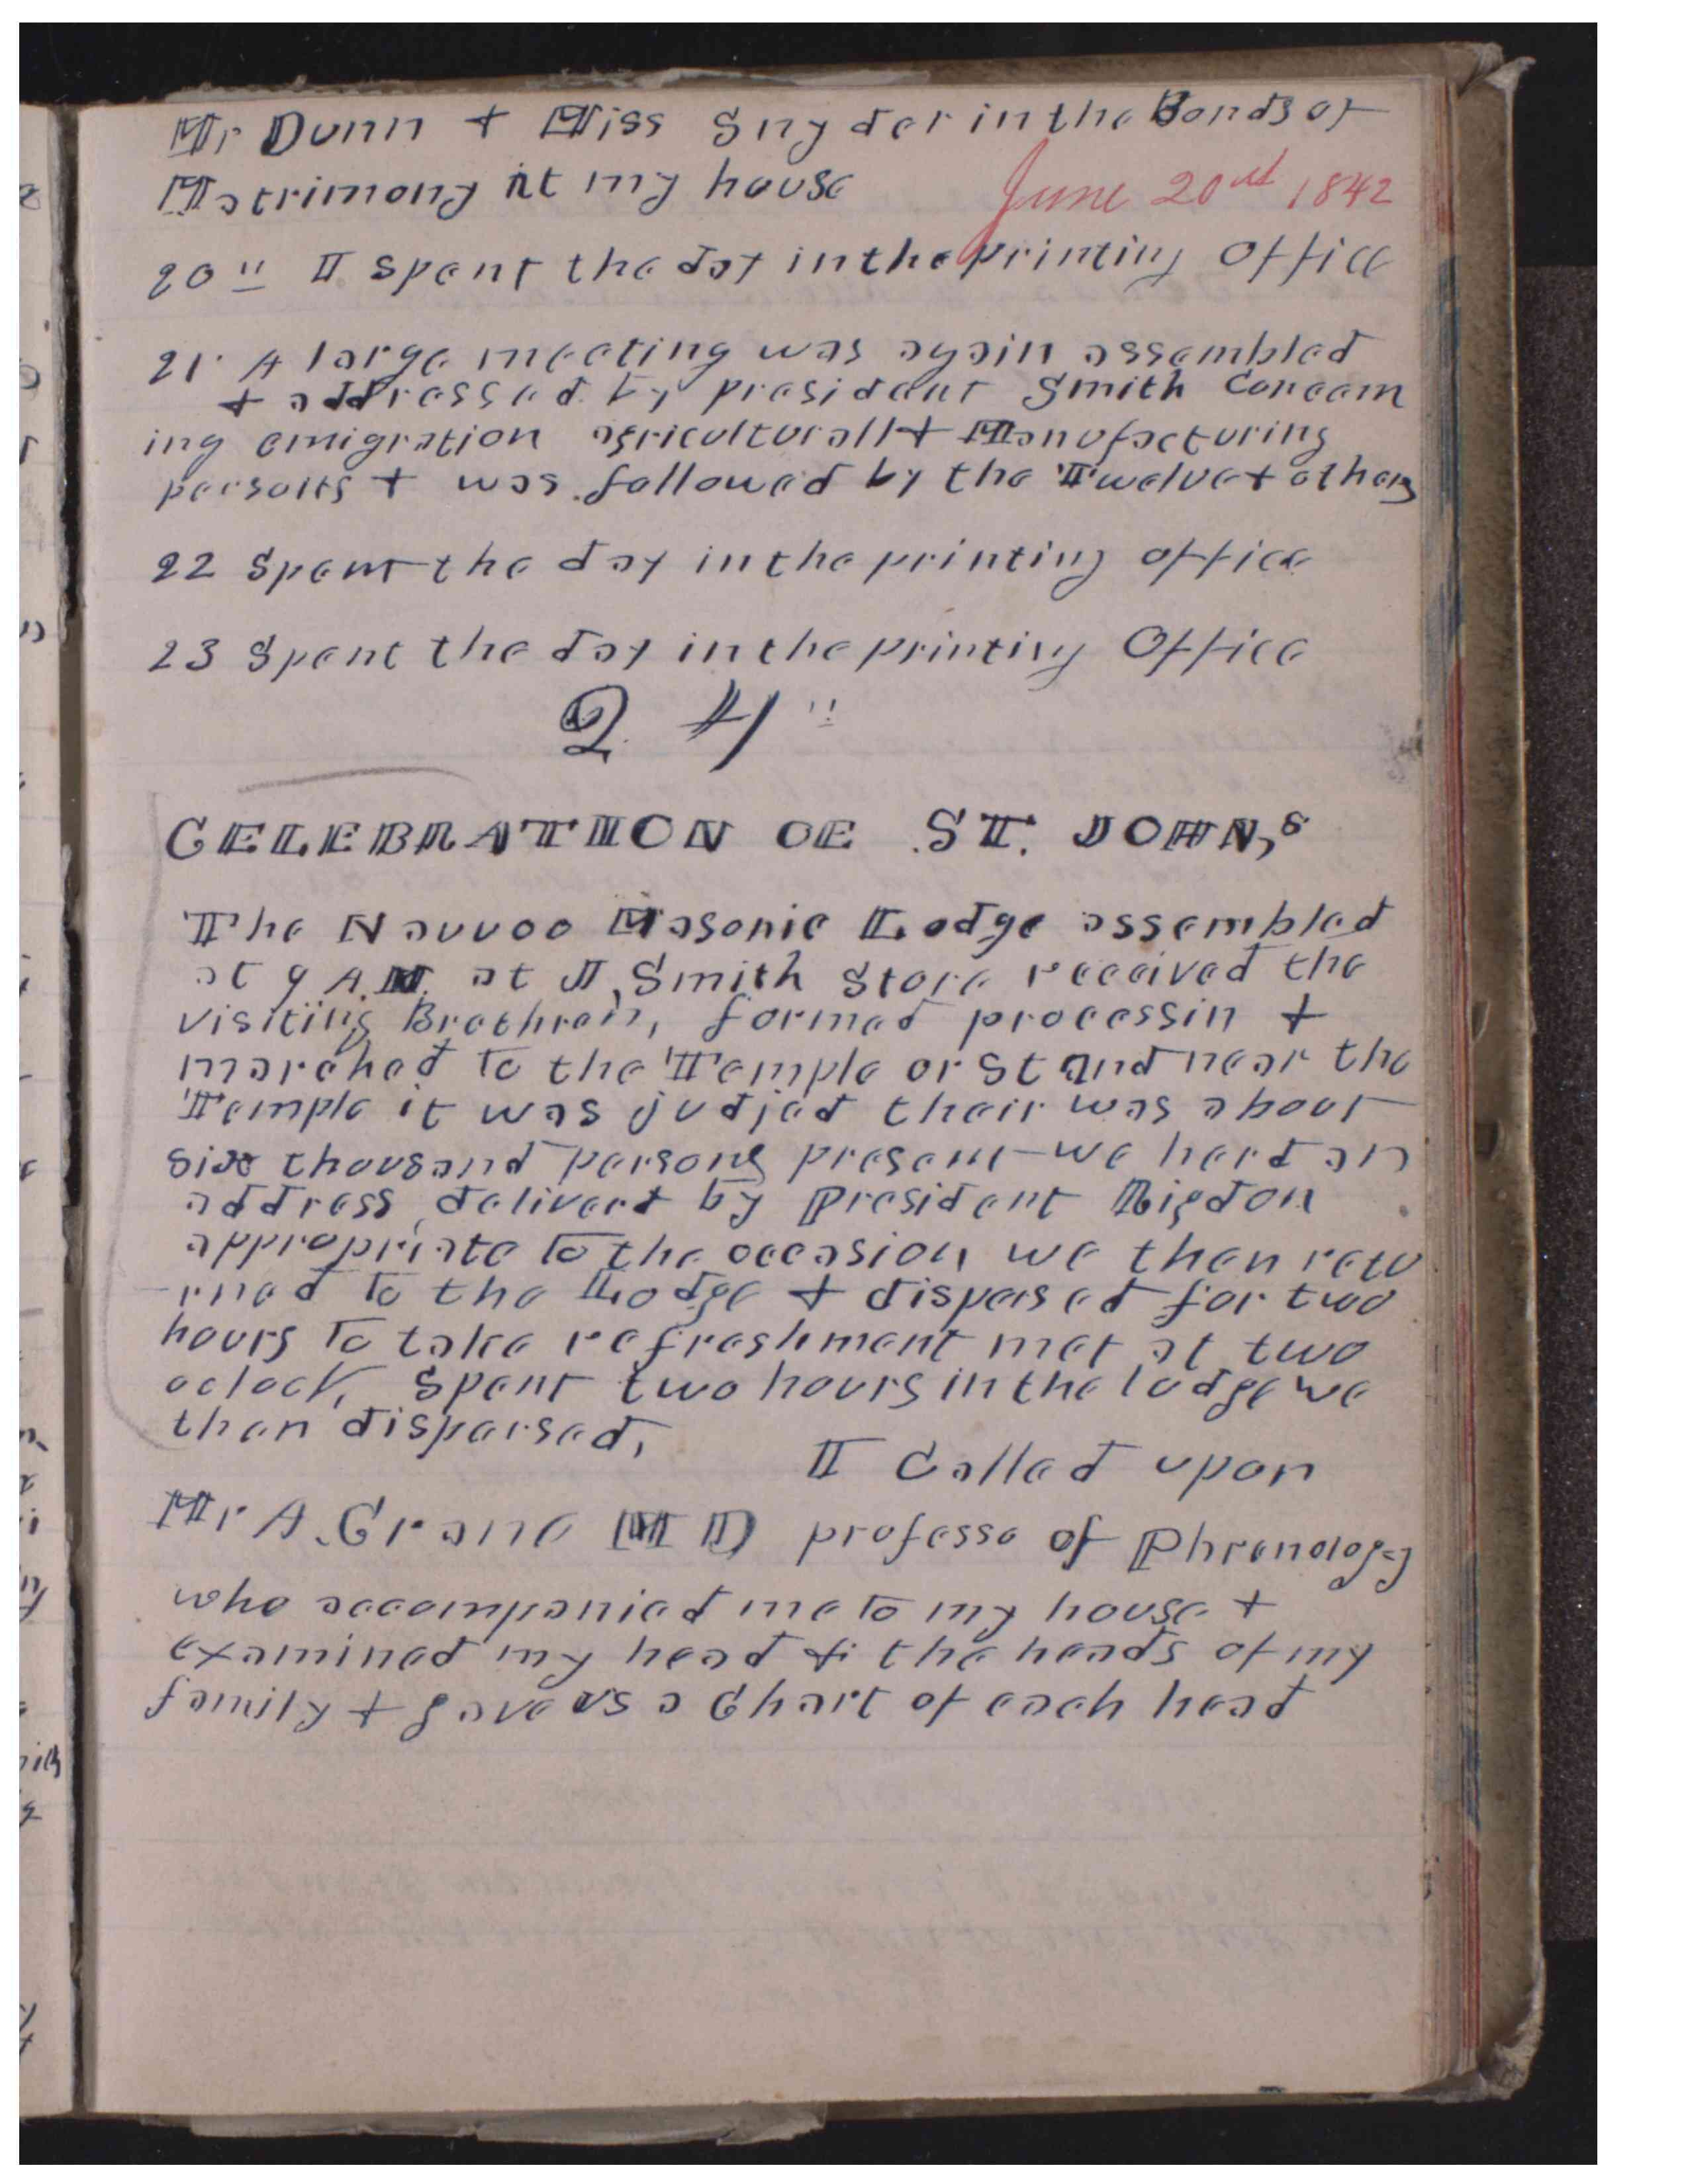 Mr Dunn & Miss Snyder in the Bonds of
Matrimony at my house
June 20nd 1842
20" I spent the day in the printing Office
21. A large meeting was again assembled
& addressed by president Smith Concern
ing emigration agricultural & Manufacturing
persons & was followed by the Twelve & others
22 Spent the day in the printing office
23 Spent the day in the printing Office
24"
CELEBRATION OF ST. JOHN,s
The Nauvoo Masonic Lodge assembled
at 9 A.M. at J, Smith Store received the
visiting Brethren, formed processin &
marched to the Temple or Stand near the
Temple it was judjed their was about
six thousand persons present we herd an
address, deliverd by President Rigdon
appropriate to the occasion we then retu
rned to the Lodge & dispersed for two
hours to take refreshment met at two
oclock, Spent two hours in the lodge we
then dispersed,
I Called upon
Mr A. Crane MD professo of Phrenology
who accompanied me to my house &
examined my head & the heads of my
family & gave us a Chart of each head